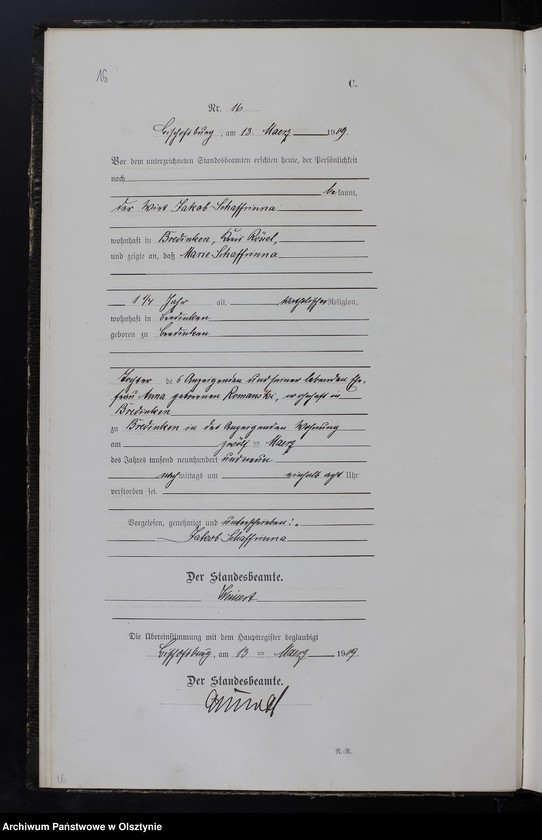 16
C.
Nr. 16
Bischofsburg, am 13 Maerz 1909.
Vor dem unterzeichneten Standesbeamten erschien heute, der Persönlichkeit
nach
bekannt,
der Wirt Jakob Schaffrinna
wohnhaft in Bredinken, Kreis Rössel,
und zeigte an, daß Marie Schaffrinna
1 1/4 Jahr alt, katholischer Religion,
wohnhaft in Bredinken
geboren zu Bredinken
Tochter des Anzeigenden und seiner lebenden Ehe-
frau Anna geborenen Romanski, wohnhaft in
Bredinken
zu Bredinken in des Anzeigenden Wohnung
am zwölften Maerz
des Jahres tausend neunhundert und neun
nachmittags um einhalb acht Uhr
verstorben sei.
Vorgelesen, genehmigt und unterschrieben:
Jakob Schaffrinna
Der Standesbeamte.
Weinert
Die Übereinstimmung mit dem Hauptregister beglaubigt
Bischofsburg, am 13 ten Maerz 1909.
Der Standesbeamte.
R.-R.
16
Archiwum Państwowe w Olsztynie